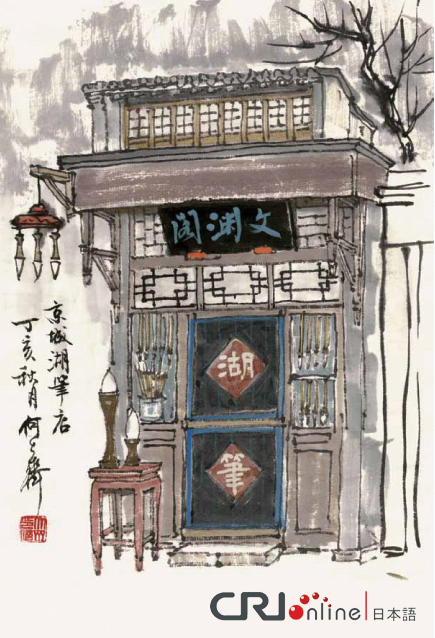 文渊閣
湖
筆
京城湖筆店
丁亥秋月何大齊
CRI online 日本語